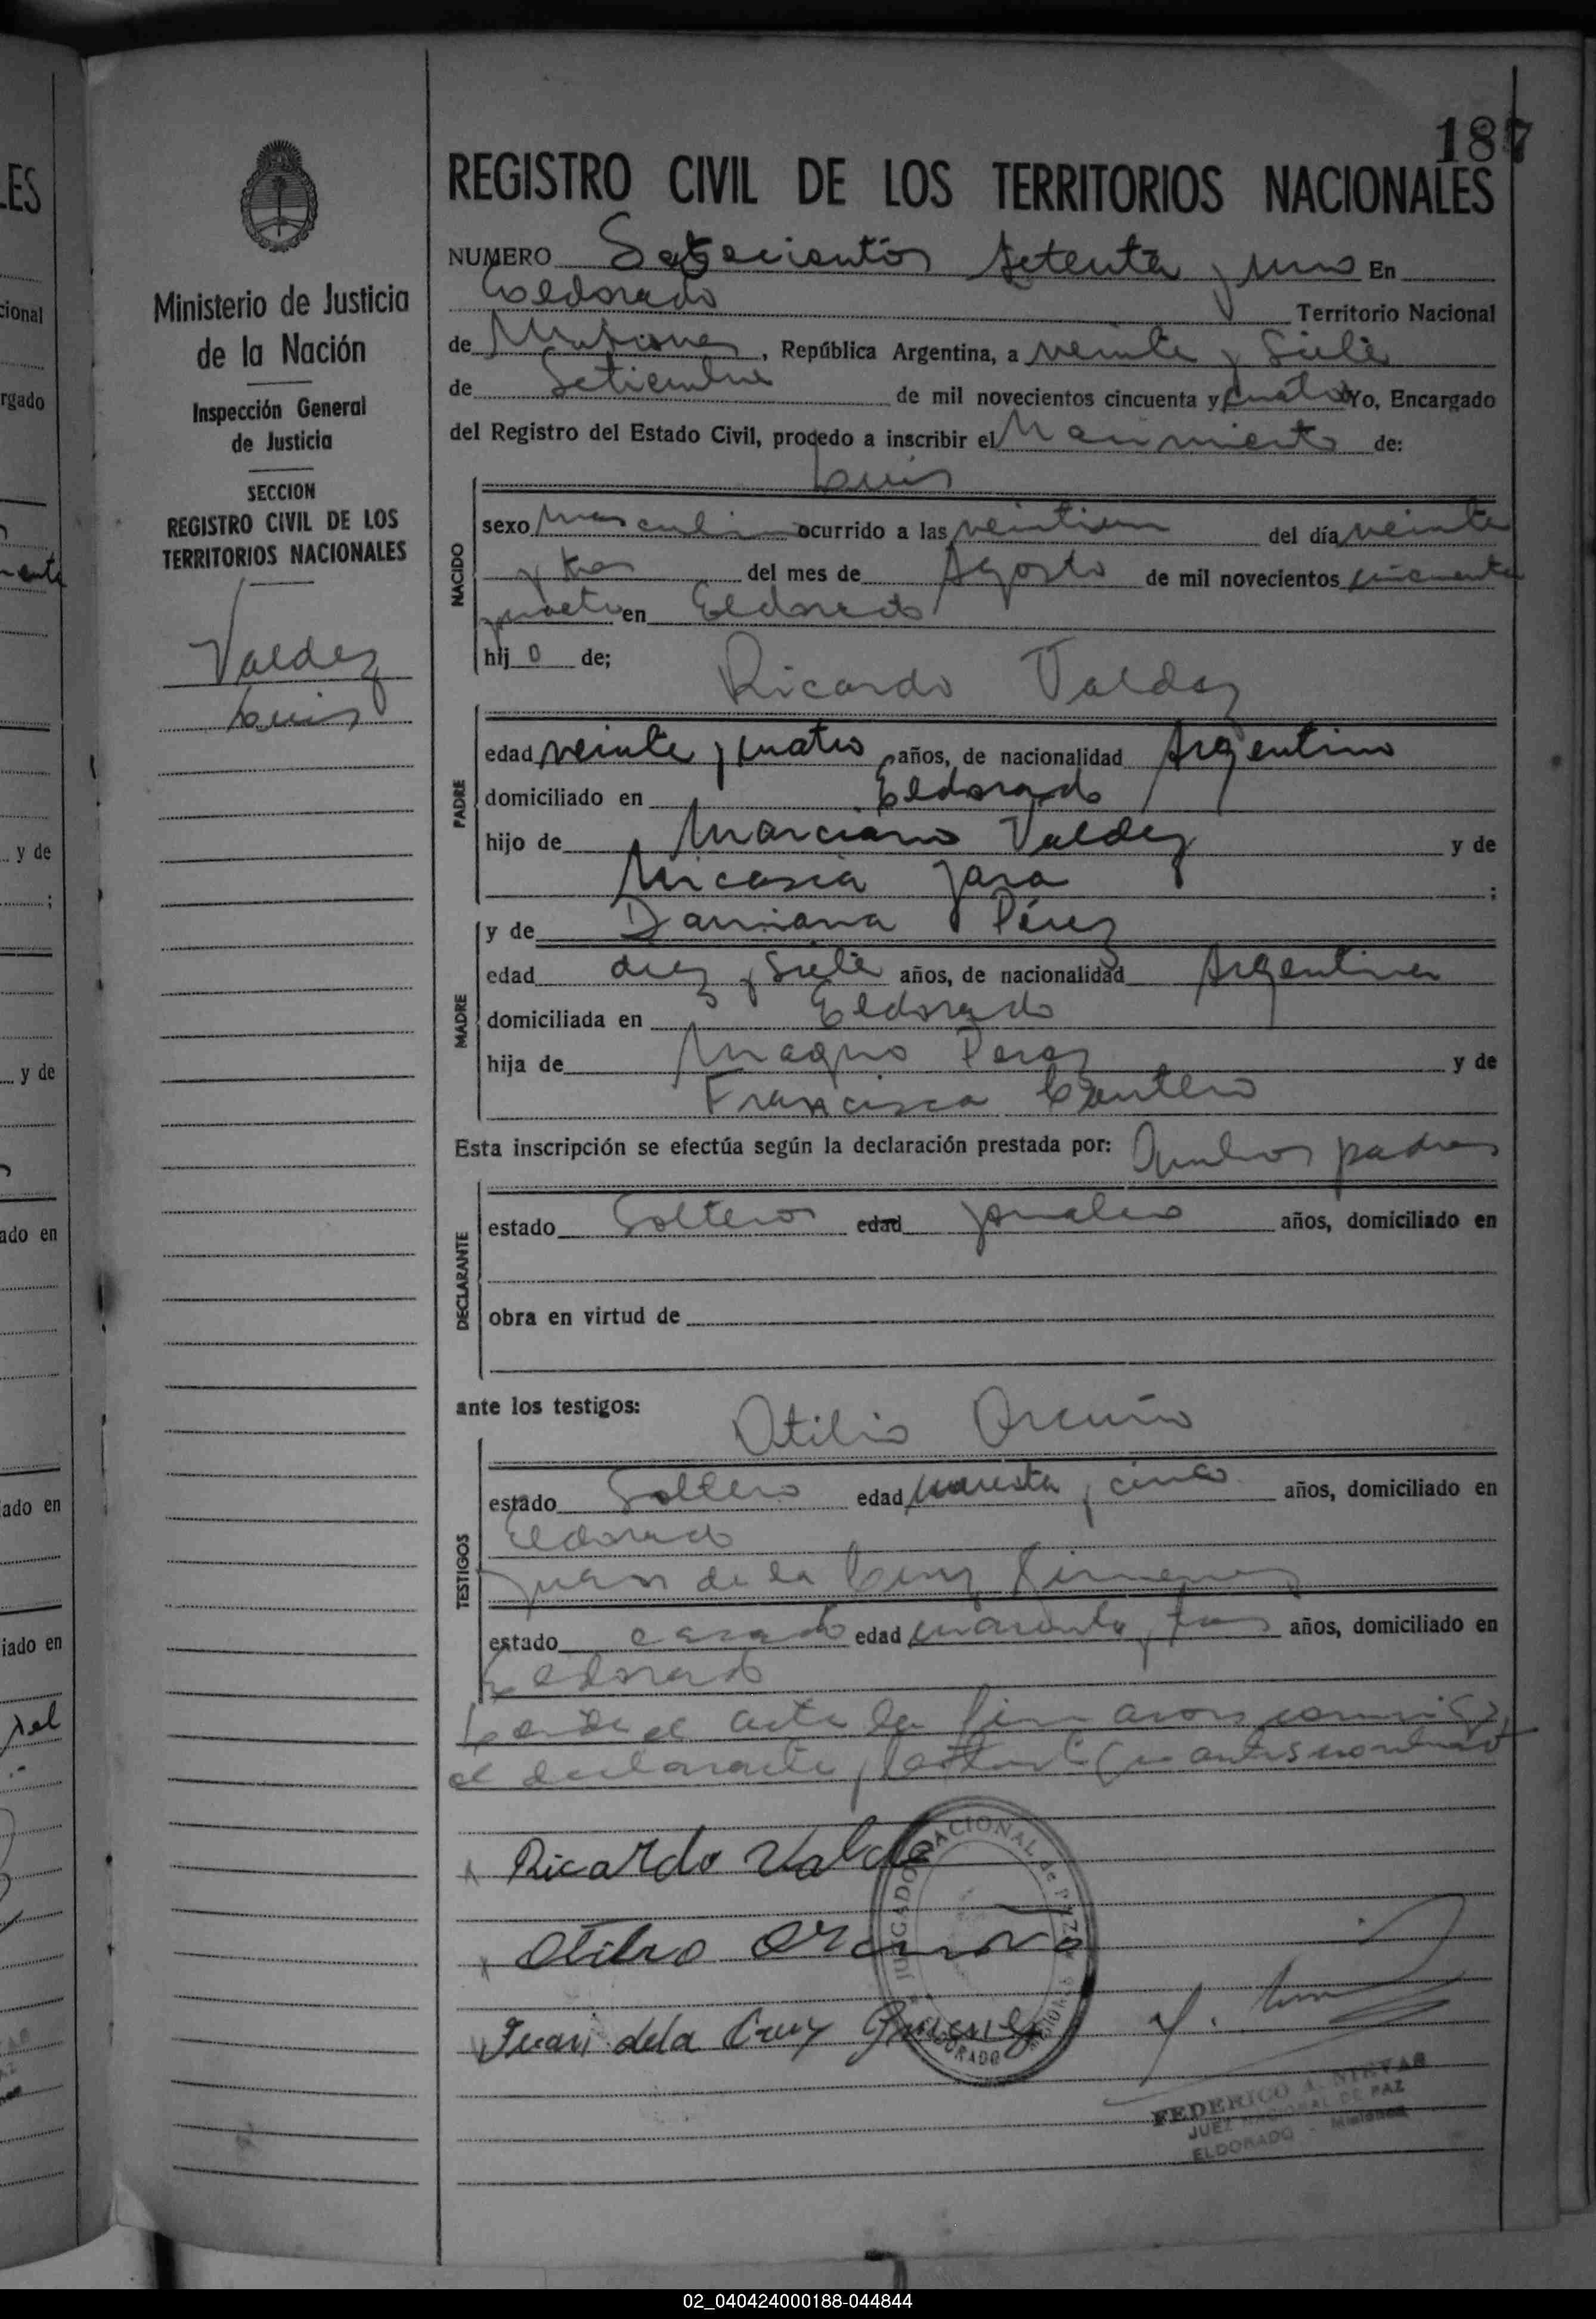 187
REGISTRO CIVIL DE LOS TERRITORIOS NACIONALES
Ministerio de Justicia
de la Nación
Inspección General
de Justicia
SECCION
REGISTRO CIVIL DE LOS
TERRITORIOS NACIONALES
Valdez
Luis
NUMERO Setecientos setenta y uno En
Eldorado Territorio Nacional
de Misiones, República Argentina, a veinte y siete
de Setiembre de mil novecientos cincuenta y cuatro Yo, Encargado
del Registro del Estado Civil, procedo a inscribir el Nacimiento de:
Luis
NACIDO
sexo masculino ocurrido a las veintiuna del día veinte
y tres del mes de Agosto de mil novecientos cincuenta
y cuatro en Eldorado
hij o de;
Ricardo Valdez
PADRE
edad veinte y cuatro años, de nacionalidad Argentino
domiciliado en Eldorado
hijo de Marciano Valdez y de
Nicasia Jara ;
y de Damiana Pérez
MADRE
edad diez y siete años, de nacionalidad Argentina
domiciliada en Eldorado
hija de Magno Perez y de
Francisca Cantero
Esta inscripción se efectúa según la declaración prestada por: Ambos padres
DECLARANTE
estado Solteros edad años, domiciliado en
obra en virtud de
ante los testigos:
Otilio
TESTIGOS
estado Soltero edad cuarenta y cinco años, domiciliado en
Eldorado
Juan de la Cruz Gimenez
estado casado edad cuarenta y tres años, domiciliado en
Eldorado
el acta la firmaron conmigo
el declarante y los testigos antes nombrados
Ricardo Valdez
Otilio
Juan dela Cruz Gimenez
JUZGADO NACIONAL de PAZ
ELDORADO MISIONES
FEDERICO A. NIEVAS
JUEZ NACIONAL DE PAZ
ELDORADO - Misiones
02_040424000188-044844